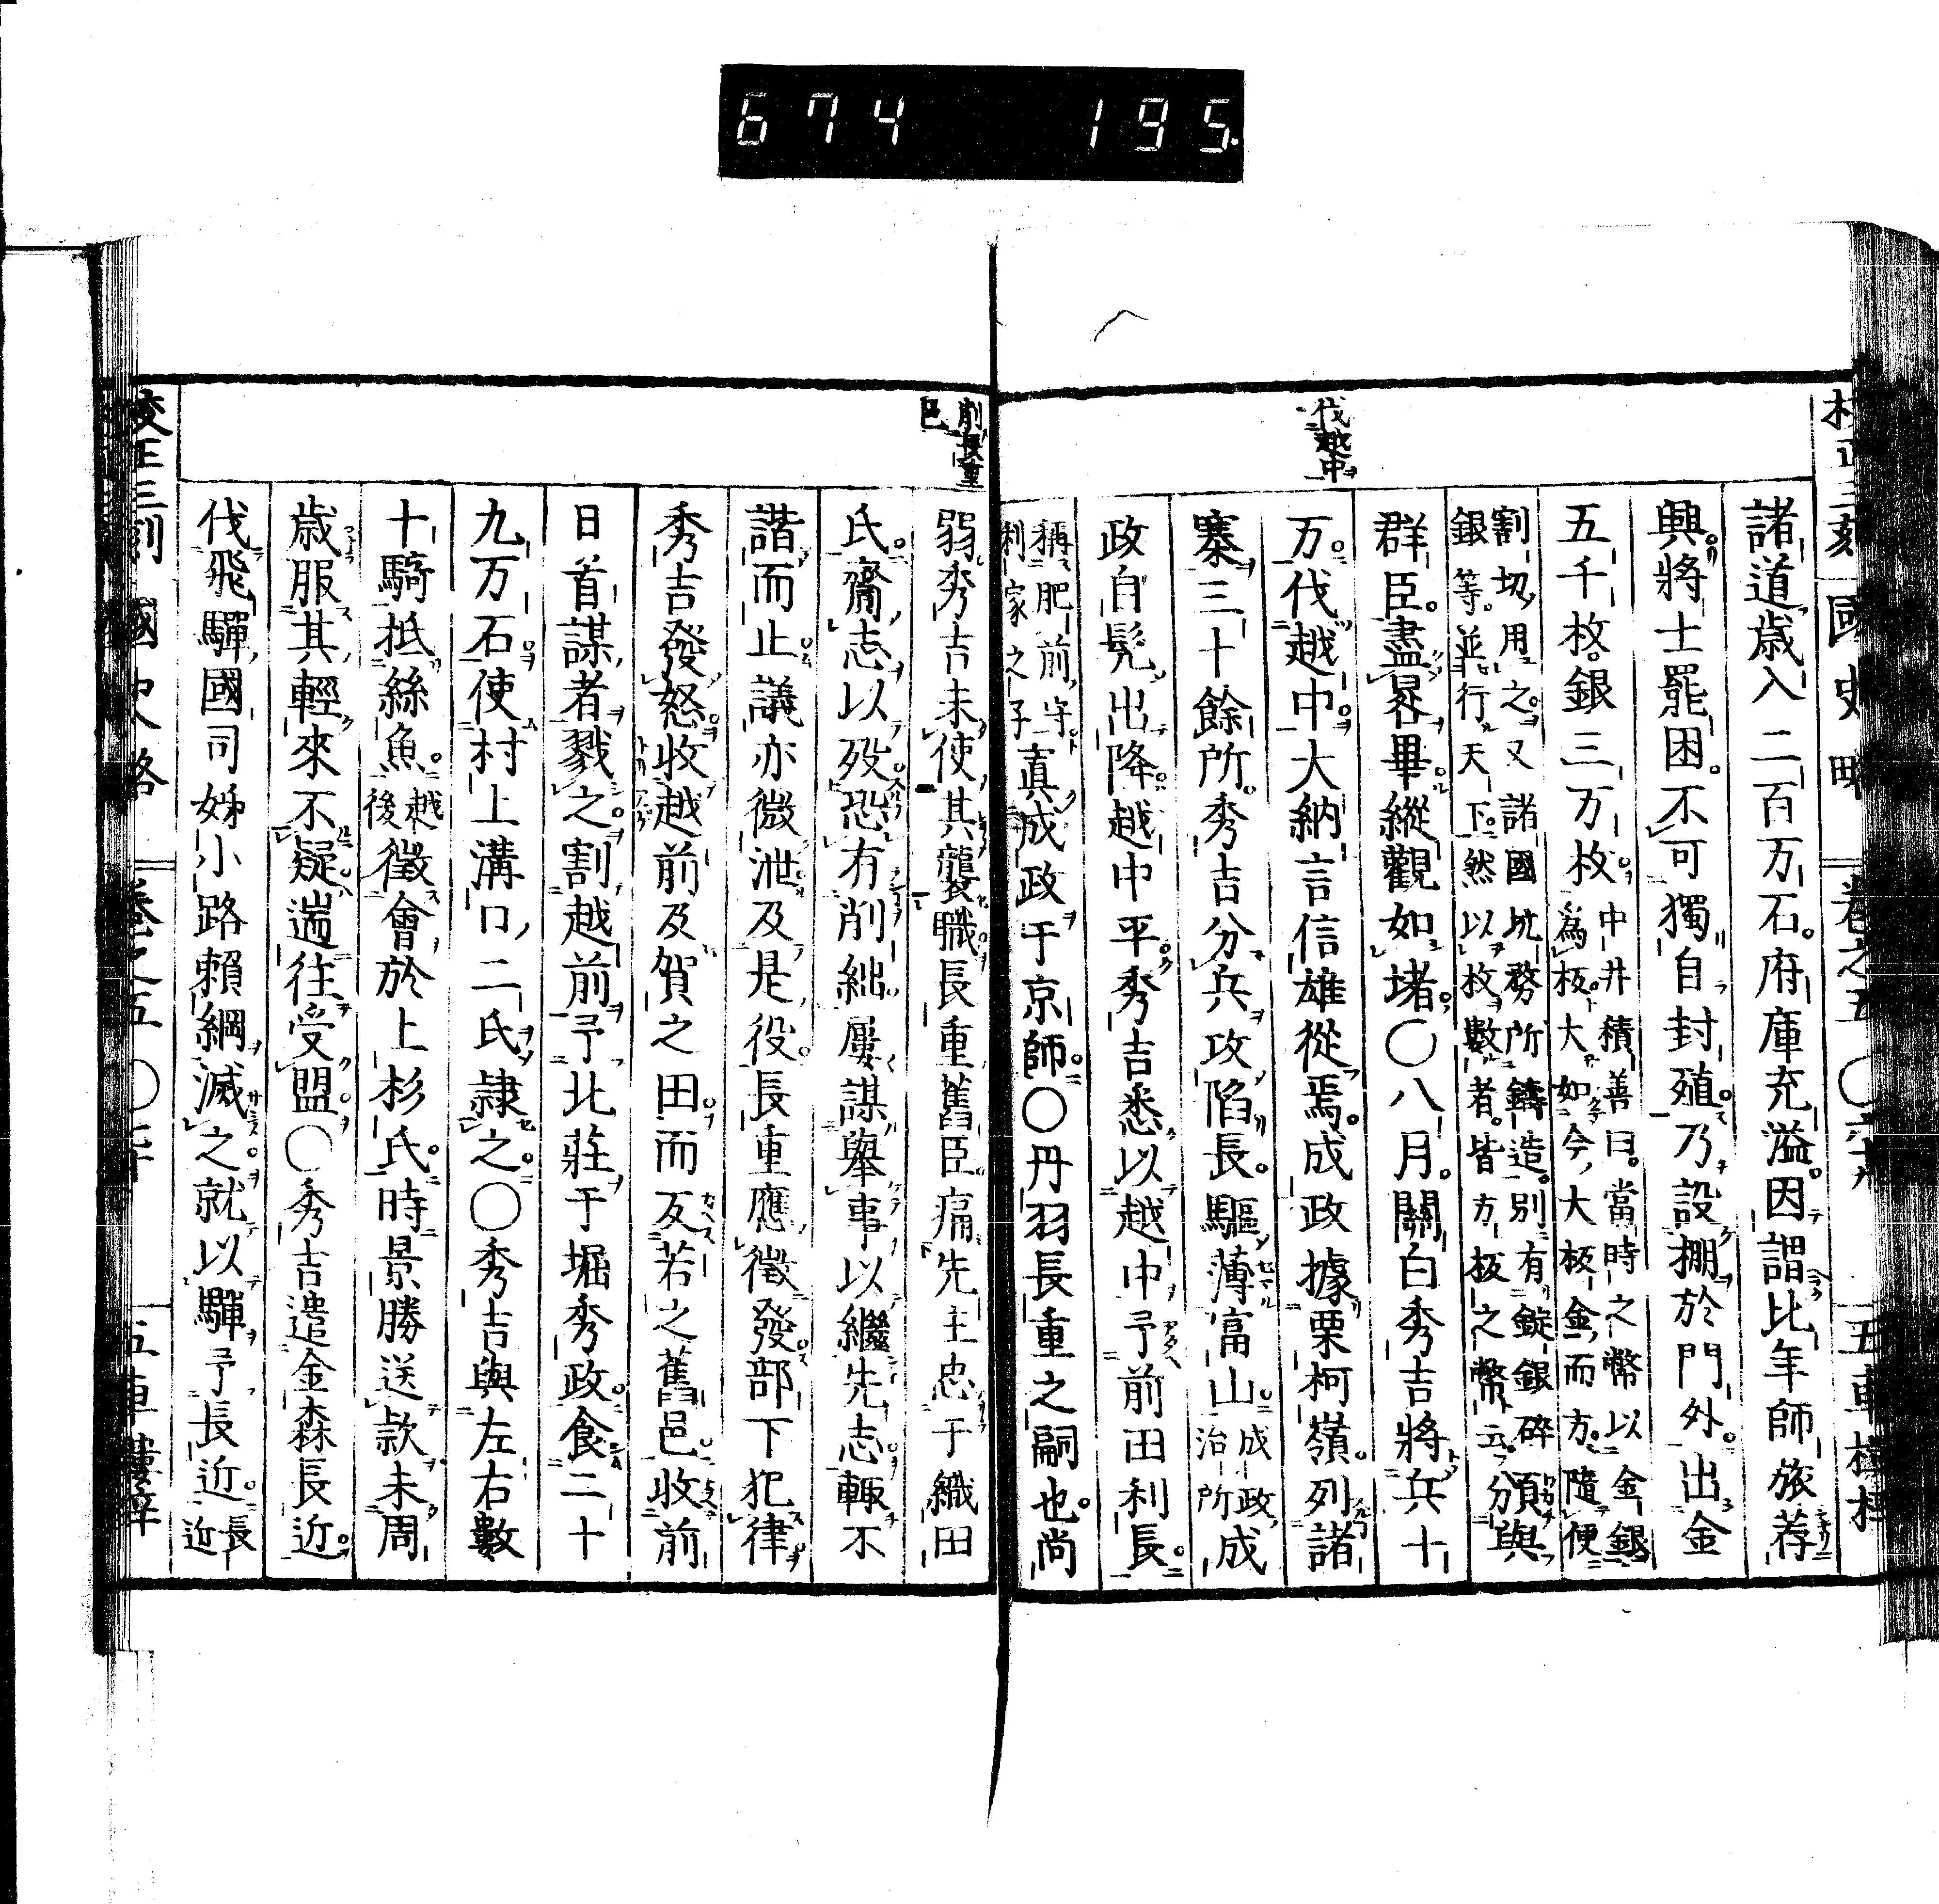 674 195
伐越中
諸道歳入二百万石。府庫充溢。因謂比年師旅荐
興。將士罷困。不可獨自封殖。乃設棚於門外。出金
五千枚。銀三万枚。中井積善曰。當時之幣以金銀
為板。大如今大板金而方。隨便
割切用之。又諸國坑務所鑄造。別有錠銀碎
銀等。並行天下。然以枚數者。皆方板之幣云。分與
群臣。盡畧畢縱觀如堵。〇八月。關白秀吉將兵十
万。伐越中。大納言信雄從焉。成政據栗柯嶺。列諸
寨三十餘所。秀吉分兵攻陷。長驅薄富山。成政
治所成
政自髡出降。越中平。秀吉悉以越中予前田利長。
利家之子
稱肥前守眞成政于京師。〇丹羽長重之嗣也。尚
削長重
邑
弱。秀吉未使其襲職。長重舊臣痛先主忠于織田
氏。齎志以歿。恐有削絀。屢謀舉事以繼先志。輙不
諧而止。議亦微泄。及是役。長重應徵發。部下犯律。
秀吉發怒。收越前及賀之田。而反若之舊邑。收前
日首謀者戮之。割越前予北莊于堀秀政。食二十
九万石。使村上溝口二氏隷之。〇秀吉與左右數
十騎抵絲魚。越
後徵會於上杉氏。時景勝送款未周
歳。服其輕來不疑。遄往受盟。〇秀吉遣金森長近。
伐飛驒國司姊小路賴綱滅之。就以驒予長近。長
近
校正三刻 國史畧 卷之五 〇 五車樓梓